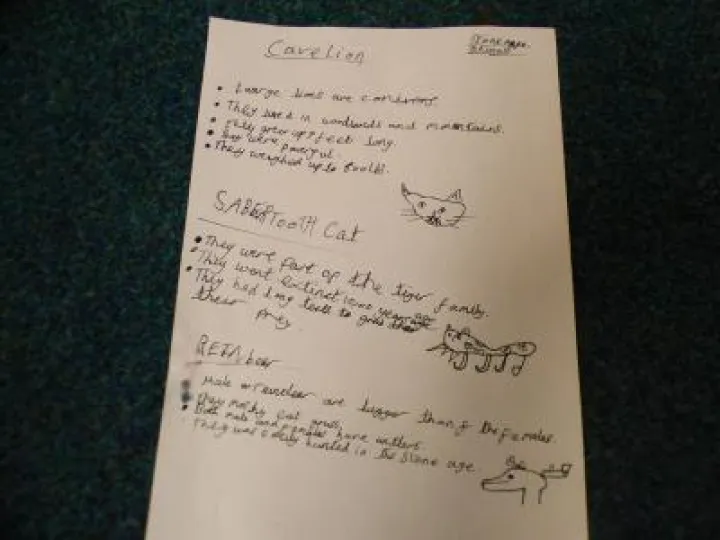 Cave lion
Stone age
animals
• Large lions are carnivores.
• They lived in woodlands and mountains.
• They grew up 7 feet long.
• They were powerful.
• They weighed up to
SABERTOOTH Cat
• They were part of the tiger family.
• They went extinct years ago
• They had long teeth to grab
their prey
REINDeer
Male reindeer are bigger than the females.
• They mostly eat grass,
• Both male and females have antlers.
They was hunted in the Stone age